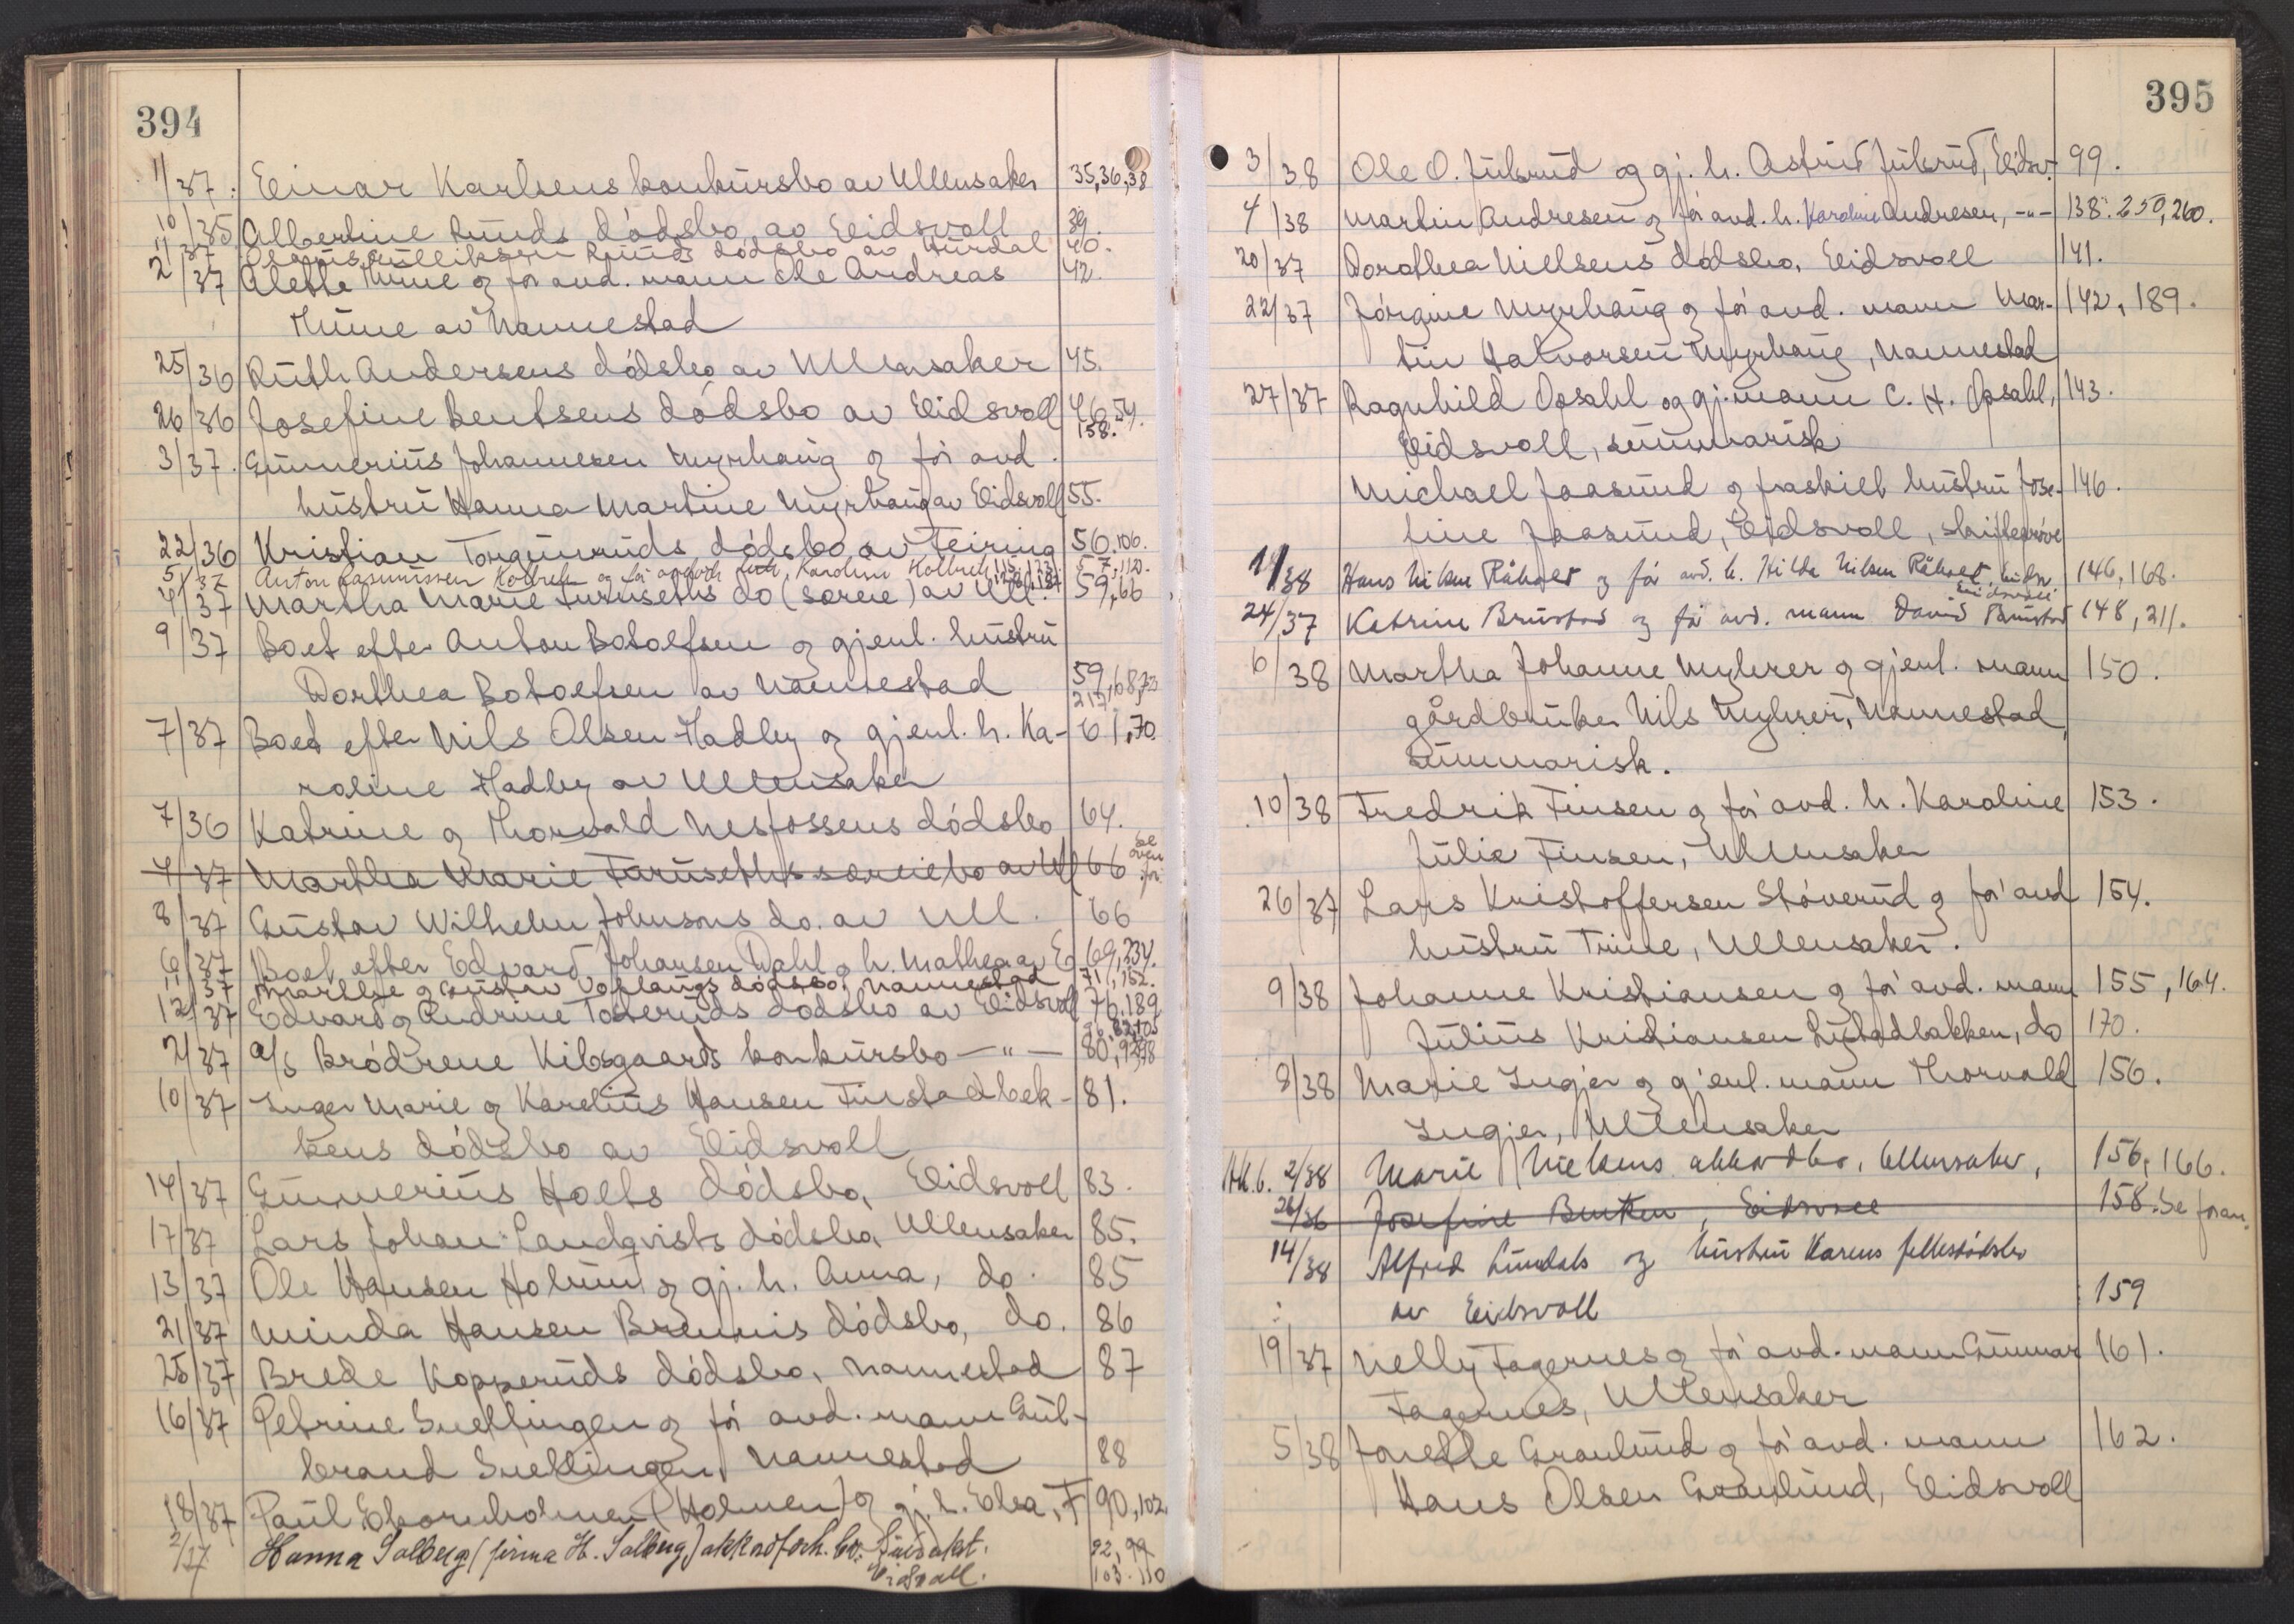 394
1/37. Einar Karlsens konkursbo av Ullensaker 35,36,38
10/35 Albertine Ruuds dödsbo, av Eidsvoll 39.
11/37 Gulliksen Ruuds dödsbo av Hurdal 40.
2/37 Alette Mune og før avd. mann Ole Andreas 42.
Mune av Nannestad
25/36 Ruth Andersens dödsbo av Ullensaker 45.
26/36 Josefine Bentsens dödsbo av Eidsvoll 46,54.
158.
3/37. Gunnerius Johannesen Myrhaug og før avd.
hustru Hanna Martine Myrhaug av Eidsvoll 55.
22/36 Kristian Torgunruds dödsbo av Feiring 56.106.
5/37 Anton Rasmussen Kolbrek og før Karoline Kolbrek 57,112.
4/37 Martha Marie Furuseths do (særeie) av Ull. 59,66
9/37 Boet efter Anton Botolfsen og gjenl. hustru
Dorthea Botolfsen av Nannestad 59,68,73
217
7/37 Boet efter Nils Olsen Hadley og gjenl. h. Ka- 61,70.
roline Hadley av Ullensaker
7/36 Katrine og Thorvald Nesfossens dödsbo 64.
4/37 Martha Marie Furuseths særeiebo av Ull 66 se oven for
8/37 Gustav Wilhelm Johnsons do. av Ull. 66
6/37 Boet efter Edvard Johansen Dahl og h. Mathea av E 69,234.
11/37 Marthe og Gustav Voflangs dödsbo, Nannestad 71,152.
12/37 Edvard og Andrine Tosteruds dödsbo av Eidsvoll 76,189
2/37 a/s Brödrene Kibsgaards konkursbo —"— 80,92,98
10/37 Inger Marie og Karelius Hansen Finstadbek- 81.
kens dödsbo av Eidsvoll
14/37 Gunnerius Holts dödsbo, Eidsvoll 83.
17/37 Lars Johan Landqvists dödsbo, Ullensaker 85.
13/37 Ole Hansen Holum og gj. h. Anna, do. 85
21/37 Minda Hansen Brennis dödsbo, do. 86
25/37 Brede Kopperuds dödsbo, Nannestad 87
16/37 Petrine Snellingen og før avd. mann Gul-
brand Snellingen, Nannestad 88
18/37 Paul Ekornholmen (Holmen) og gj. h. Elsa, F 90,102.
2/37 Hanna Solberg (firma H. Solberg) akkordforh. bo.
Eidsvoll. 92,99
103.110
395
3/38 Ole O. Julsrud og gj. h. Astrid Julsrud, Eidsv. 99.
4/38 Martin Andresen og før avd. h. Karoline Andresen, -"- 138. 250,260.
20/37 Dorothea Nielsens dödsbo, Eidsvoll 141.
22/37 Jörgine Myrhaug og før avd. mann Mar- 142, 189.
tin Halvorsen Myrhaug, Nannestad
27/37 Ragnhild Opsahl og gj. mann C. H. Opsahl, 143.
Eidsvoll, summarisk
Michael Faasund og fraskilt hustru Jose- 146.
fine Faasund, Eidsvoll, skifteprøve
1/38 Hans Nilsen Råholt og før avd. h. Hilda Nilsen Råholt, Eidsv. 146,168.
24/37 Katrine Brustad og før avd. mann David Brustad Eidsvoll 148,211.
6/38 Martha Johanne Myhrer og gjenl. mann 150.
gårdbruker Nils Myhrer, Nannestad,
summarisk.
10/38 Fredrik Finsen og før avd. h. Karoline 153.
Julie Finsen, Ullensaker
26/37 Lars Kristoffersen Stöverud og før avd 154.
hustru Trine, Ullensaker.
9/38 Johanne Kristiansen og før avd. mann 155, 164.
Julius Kristiansen Lystadbakken, do 170.
8/38 Marie Lugjer og gjenl. mann Thorvald 156.
Lugjer, Ullensaker
Akk.b. 2/38 Marie Nielsens akkordbo, Ullensaker, 156, 166.
26/36 Josefine Bentsen, Eidsvoll 158. Se foran.
14/38 Alfred Lundals og hustru Karens fellesdödsbo
av Eidsvoll 159
19/37 Nelly Fagernes og før avd. mann Gunnar 161.
Fagernes, Ullensaker
5/38 Jonette Granlund og før avd. mann 162.
Hans Olsen Granlund, Eidsvoll